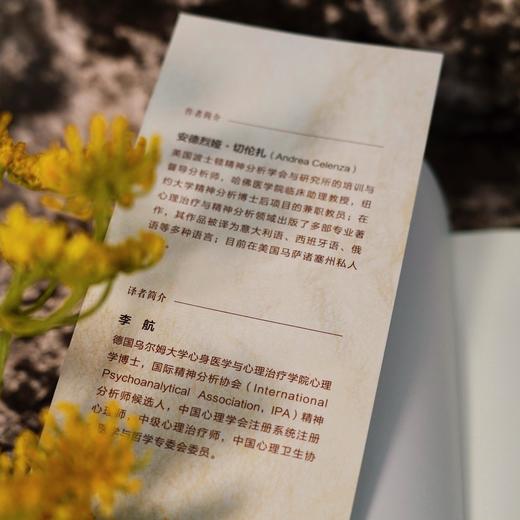 作者简介
安德烈娅·切伦扎（Andrea Celenza）
美国波士顿精神分析学会与研究所的培训与
督导分析师，哈佛医学院临床助理教授，纽
约大学精神分析博士后项目的兼职教员；在
心理治疗与精神分析领域出版了多部专业著
作，其作品被译为意大利语、西班牙语、俄
语等多种语言；目前在美国马萨诸塞州私人
译者简介
李 航
德国乌尔姆大学心身医学与心理治疗学院心理
学博士，国际精神分析协会（International
Psychoanalytical Association, IPA）精神
分析师候选人，中国心理学会注册系统注册
心理师，中级心理治疗师，中国心理卫生协
与哲学专委会委员。